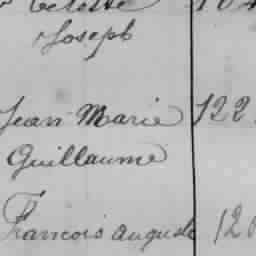 Celeste 104
Joseph
Jean Marie 122
Guillaume
Francois auguste 120